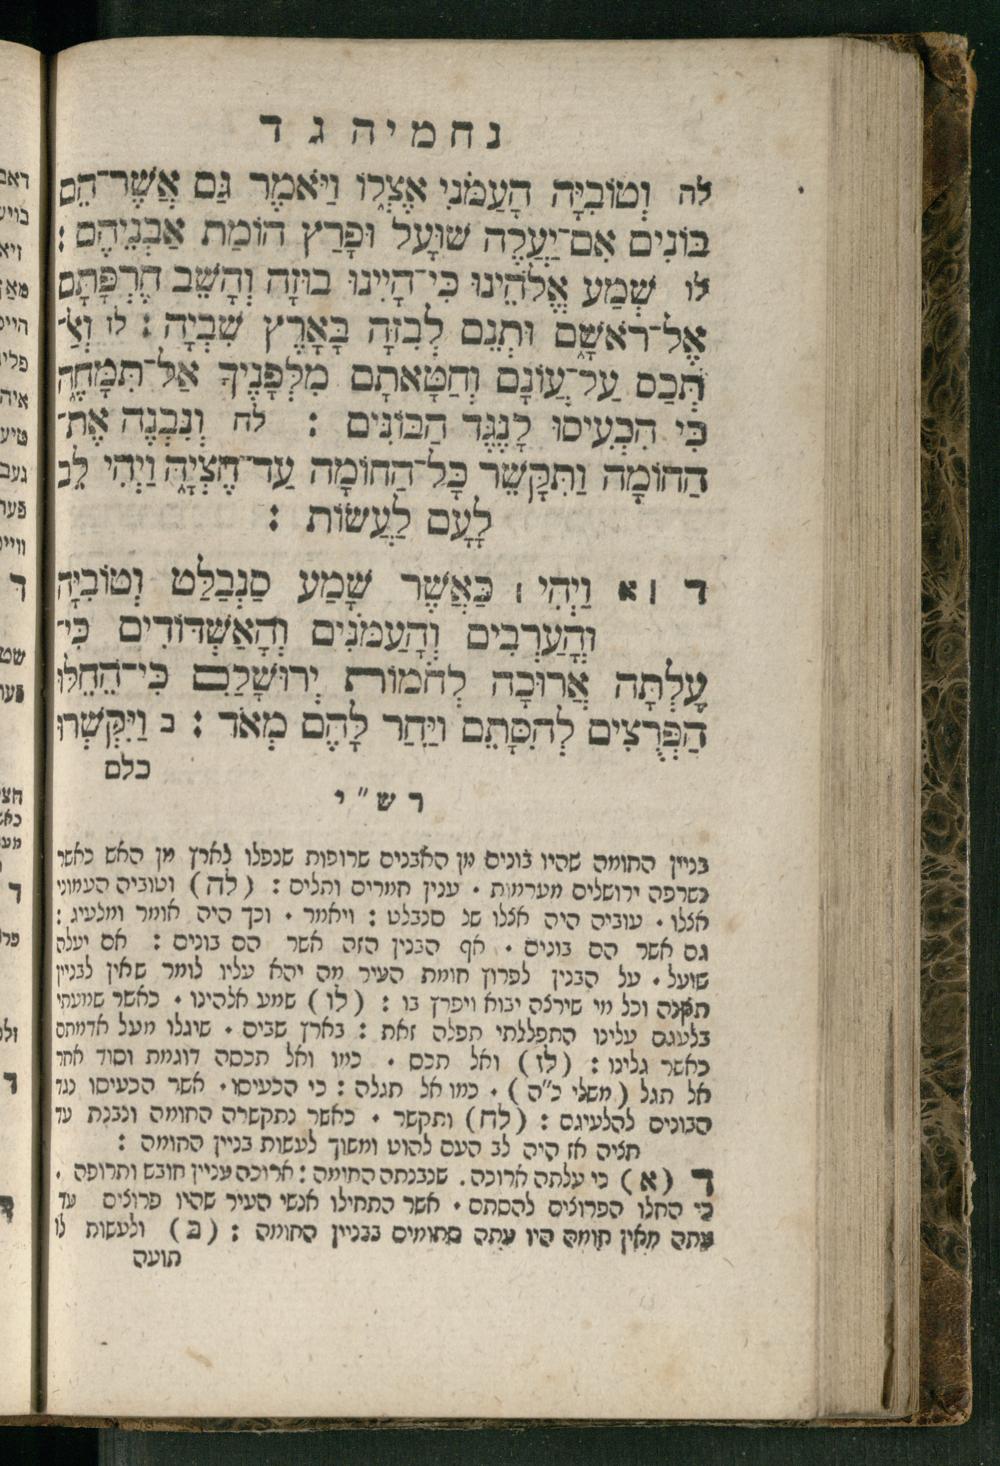 נחמיה ג ד
לה וְטוֹבִיָּה הָעַמֹּנִי אֶצְלוֹ וַיֹּאמֶר גַּם אֲשֶׁר־הֵם
בּוֹנִים אִם־יַעֲלֶה שׁוּעָל וּפָרַץ חוֹמַת אַבְנֵיהֶם :
לו שְׁמַע אֱלֹהֵינוּ כִּי־הָיִינוּ בוּזָה וְהָשֵׁב חֶרְפָּתָם
אֶל־רֹאשָׁם וּתְנֵם לְבִזָּה בָּאָרֶץ שִׁבְיָה : לז וְאַל־
תְּכַס עַל־עֲוֹנָם וְחַטָּאתָם מִלְּפָנֶיךָ אַל־תִּמָּחֶה
כִּי הִכְעִיסוּ לְנֶגֶד הַבּוֹנִים : לח וַנִּבְנֶה אֶת־
הַחוֹמָה וַתִּקָּשֵׁר כָּל־הַחוֹמָה עַד־חֶצְיָהּ וַיְהִי לֵב
לָעָם לַעֲשׂוֹת :
ד א וַיְהִי כַּאֲשֶׁר שָׁמַע סַנְבַלַּט וְטוֹבִיָּה
וְהָעַרְבִים וְהָעַמֹּנִים וְהָאַשְׁדּוֹדִים כִּי־
עָלְתָה אֲרוּכָה לְחֹמוֹת יְרוּשָׁלִַם כִּי־הֵחֵלּוּ
הַפְּרֻצִים לְהִסָּתֵם וַיִּחַר לָהֶם מְאֹד : ב וַיִּקְשְׁרוּ
כלם
רש"י
בניין החומה שהיו בונים מן האבנים שרופות שנפלו לארץ מן האש כאשר
נשרפה ירושלים מערמות . ענין חמרים ותלים : (לה) וטוביה העמוני
אצלו . טוביה היה אצלו של סנבלט : ויאמר . וכך היה אומר ומלעיג :
גם אשר הם בונים . אף הבנין הזה אשר הם בונים : אם יעלה
שועל . על הבנין לפרוץ חומת העיר מה יהא עליו לומר שאין לבניין
תקנה וכל מי שירצה יבוא ויפרץ בו : (לו) שמע אלהינו . כאשר שמעתי
בלעגם עלינו התפללתי תפלה זאת : בארץ שביה . שיגלו מעל אדמתם
כאשר גלינו : (לז) ואל תכס . כמו ואל תכסה דוגמת וסוד אחר
אל תגל (משלי כ"ה) . כמו אל תגלה : כי הכעיסו . אשר הכעיסו נגד
הבונים להלעיגם : (לח) ותקשר . כאשר נתקשרה החומה ונבנת עד
חציה אז היה לב העם להוט ומשוך לעשות בניין החומה :
ד (א) כי עלתה ארוכה . שנבנתה החומה : ארוכה עניין חובש ותרופה .
כי החלו הפרוצים להסתם . אשר התחילו אנשי העיר שהיו פרוצים עד
עתה מאין חומה היו עתה סתומים בבניין החומה : (ב) ולעשות לו
תועה